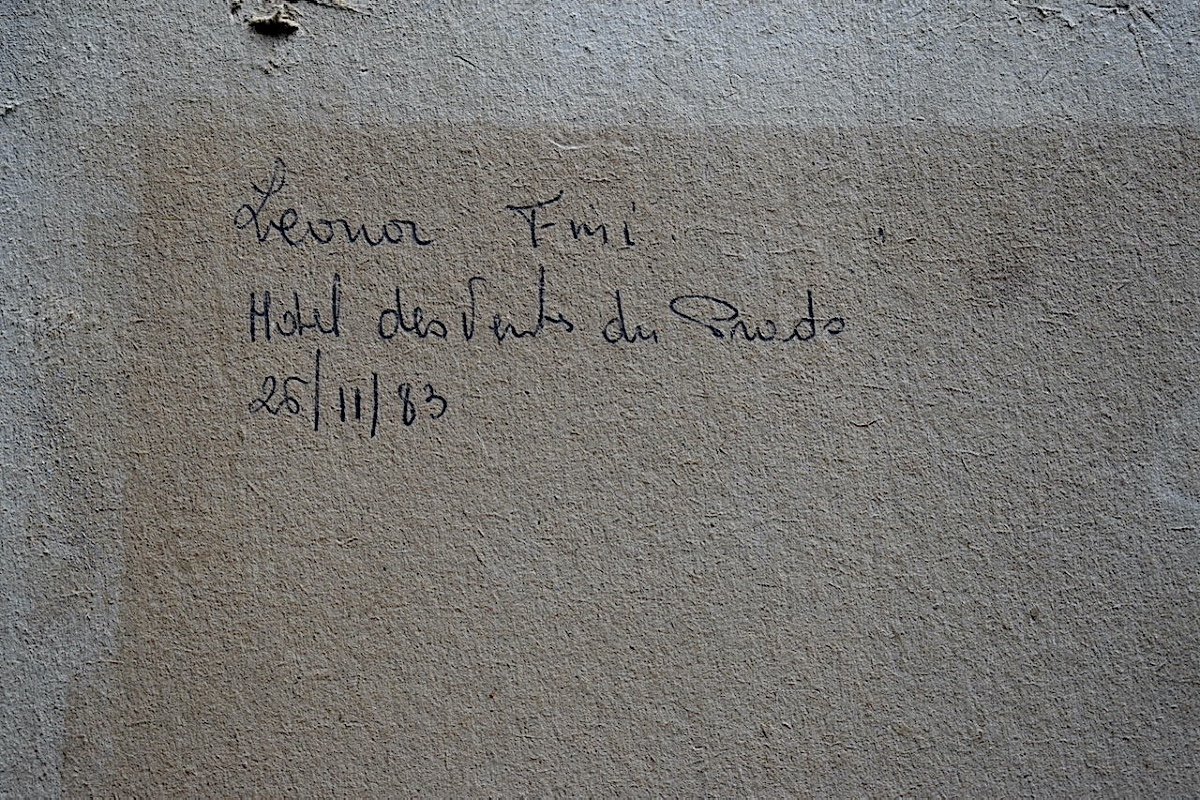 Leonor Fini
Hotel des Ventes du Prado
26/11/83